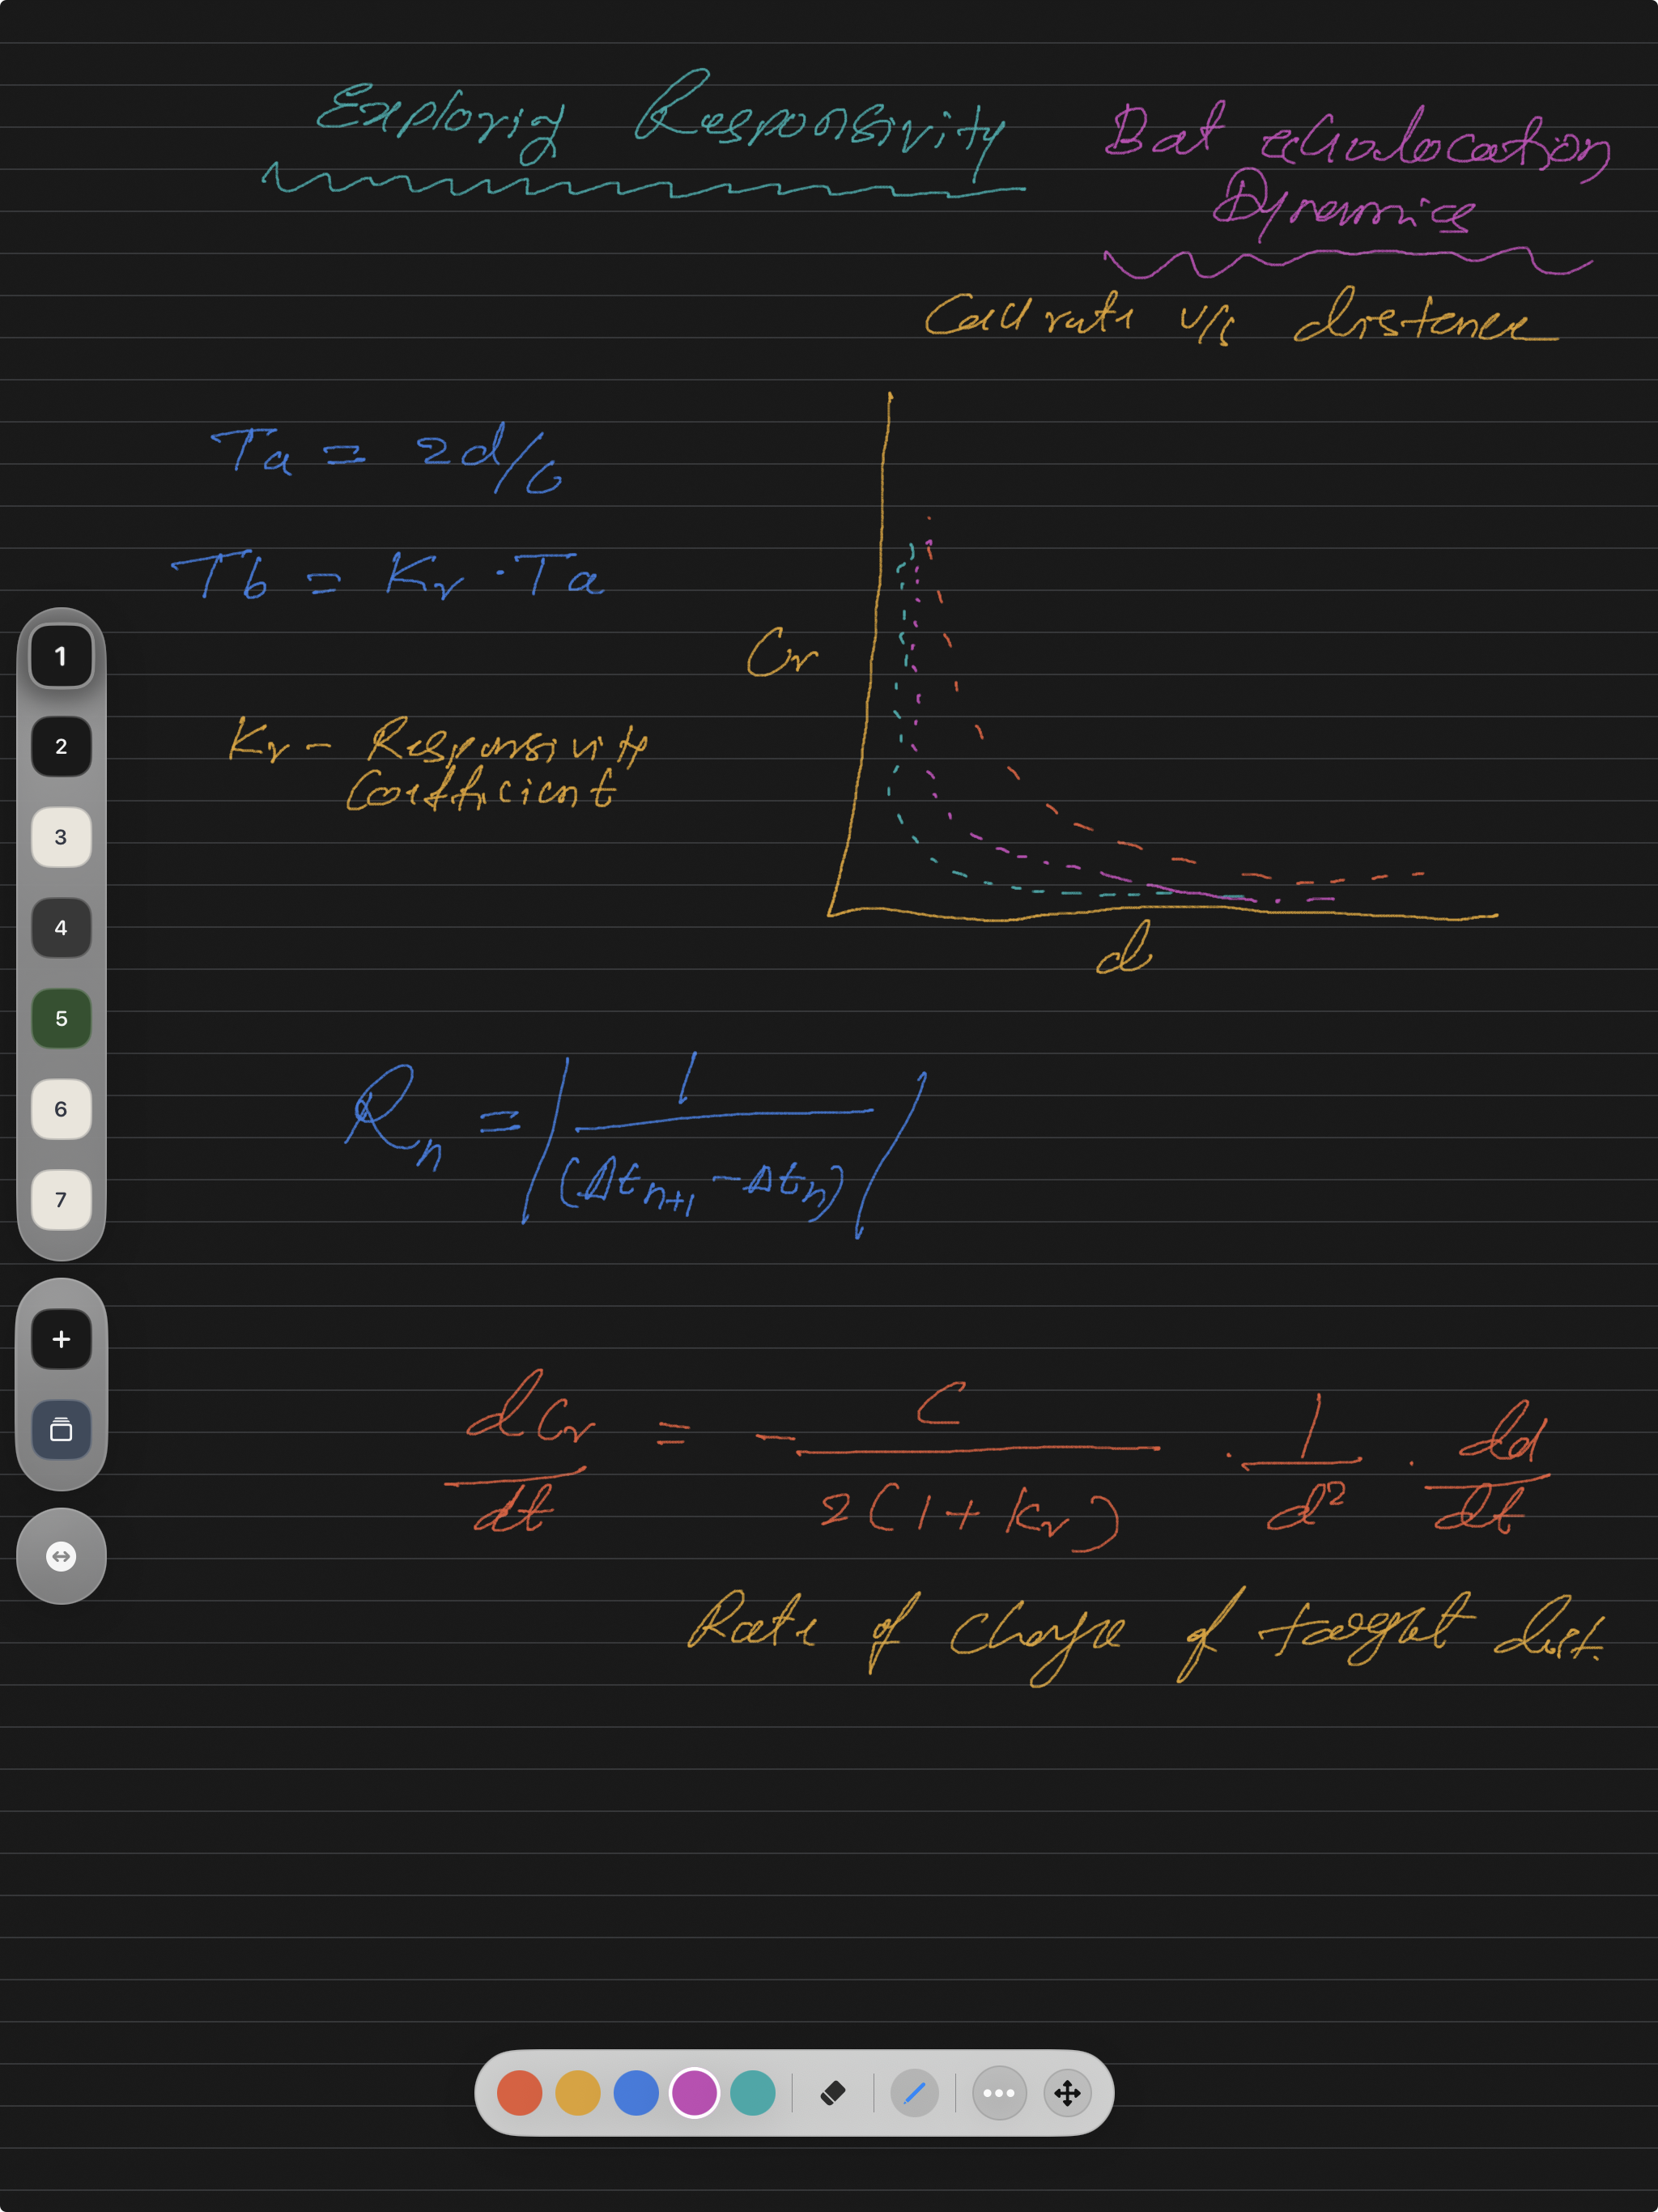 Exploring Responsivity
Bat echolocation
Dynamics
Call rate v/s distance
Ta = 2d/c
Tb = Kr · Ta
Kr - Responsivity
Coefficient
Cr
d
Rn = | 1 / (Δt n+1 - Δt n) |
dCr/dt = - C / 2(1 + kr) · 1/d² · dd/dt
Rate of change of target dist.
1
2
3
4
5
6
7